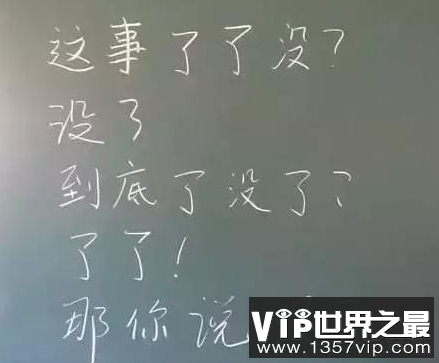 这事了了没?
没了
到底了没了?
了了!
那你说
VIP世界之最
www.1357vip.com